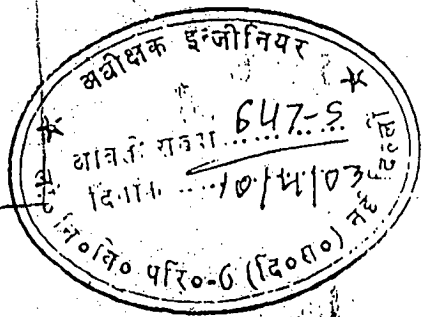 अधीक्षक इन्जीनियर
आवती संख्या 647-S
दिनांक 10/4/03
नि०वि० परि०-6 (दि०रा०) नई दिल्ली